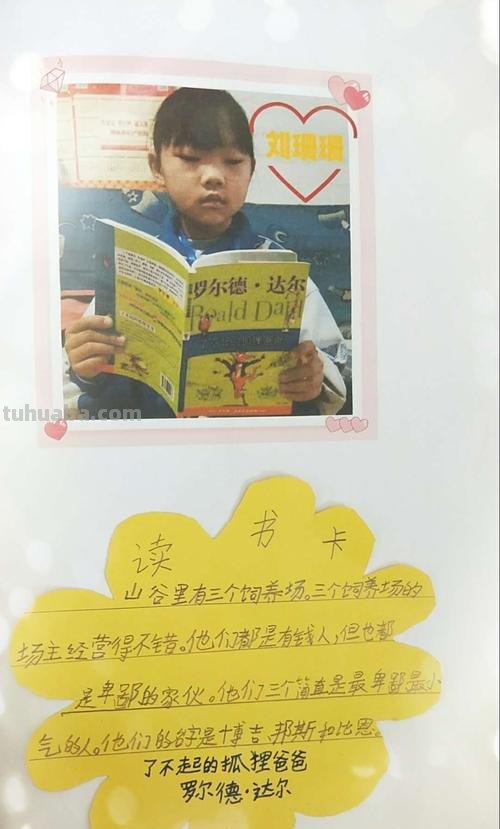 刘珊珊
罗尔德·达尔
Roald Dahl
tuhuana.com
读书卡
山谷里有三个饲养场。三个饲养场的
场主经营得不错。他们都是有钱人,但也都
是卑鄙的家伙。他们三个简直是最卑鄙最小
气的人。他们的名字是博吉、邦斯和比恩。
了不起的狐狸爸爸
罗尔德·达尔